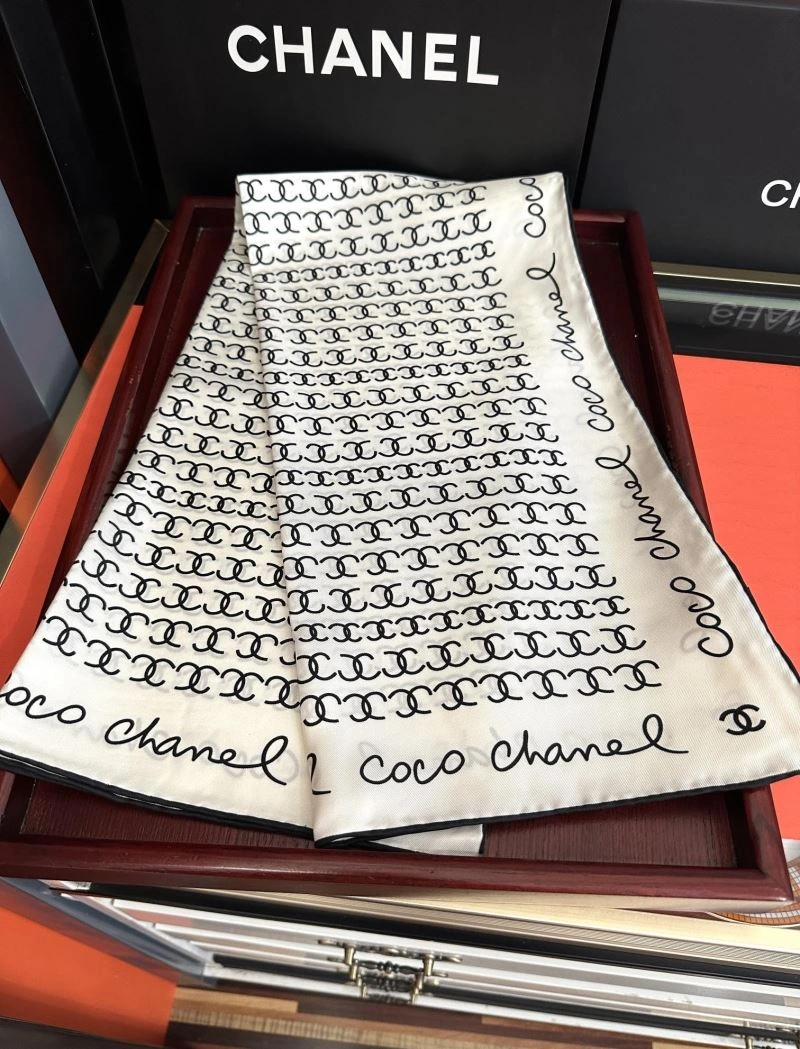 CHANEL
CHANEL
coco
coco chanel
coco chanel
coco chanel
coco chanel